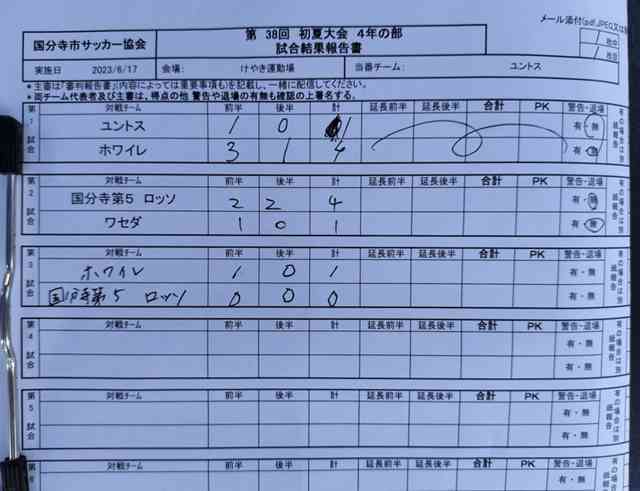 メール添付(pdf,JPEG,又は
国分寺市サッカー協会
第 38回 初夏大会 4年の部
試合結果報告書
実施日 2023/6/17 会場: けやき運動場 当番チーム: ユントス
＊主審は「審判報告書」(内容によっては重要事項も)を記載し、一緒に配信してください。
＊両チーム代表者及び主審は、得点の他 警告や退場の有無も確認の上署名する。
第1試合 対戦チーム 前半 後半 計 延長前半 延長後半 合計 PK 警告・退場 有の場合は別紙報告
ユントス 1 0 1 有・無
ホワイレ 3 1 4 有・無
第2試合 対戦チーム 前半 後半 計 延長前半 延長後半 合計 PK 警告・退場 有の場合は別紙報告
国分寺第5 ロッソ 2 2 4 有・無
ワセダ 1 0 1 有・無
第3試合 対戦チーム 前半 後半 計 延長前半 延長後半 合計 PK 警告・退場 有の場合は別紙報告
ホワイレ 1 0 1 有・無
国分寺第5 ロッソ 0 0 0 有・無
第4試合 対戦チーム 前半 後半 計 延長前半 延長後半 合計 PK 警告・退場 有の場合は別紙報告
有・無
有・無
第5試合 対戦チーム 前半 後半 計 延長前半 延長後半 合計 PK 警告・退場 有の場合は別紙報告
有・無
有・無
対戦チーム 前半 後半 計 延長前半 延長後半 合計 PK 警告・退場